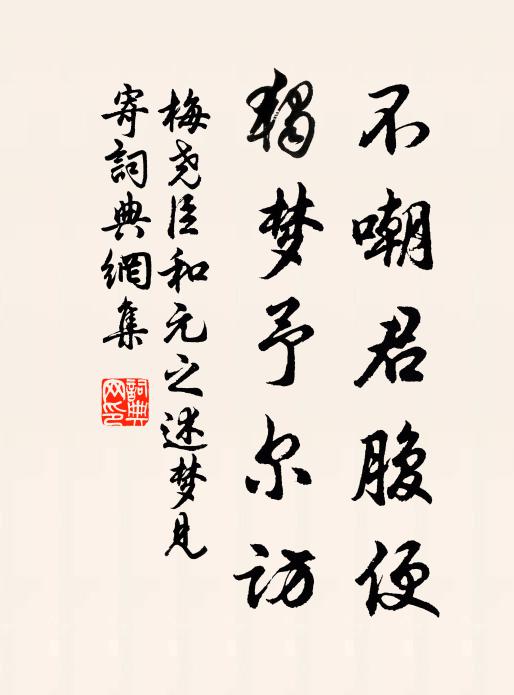 不嘲君腹便
独梦予尔访
梅尧臣和元之述梦见
寄詞典網集
詞典
网印